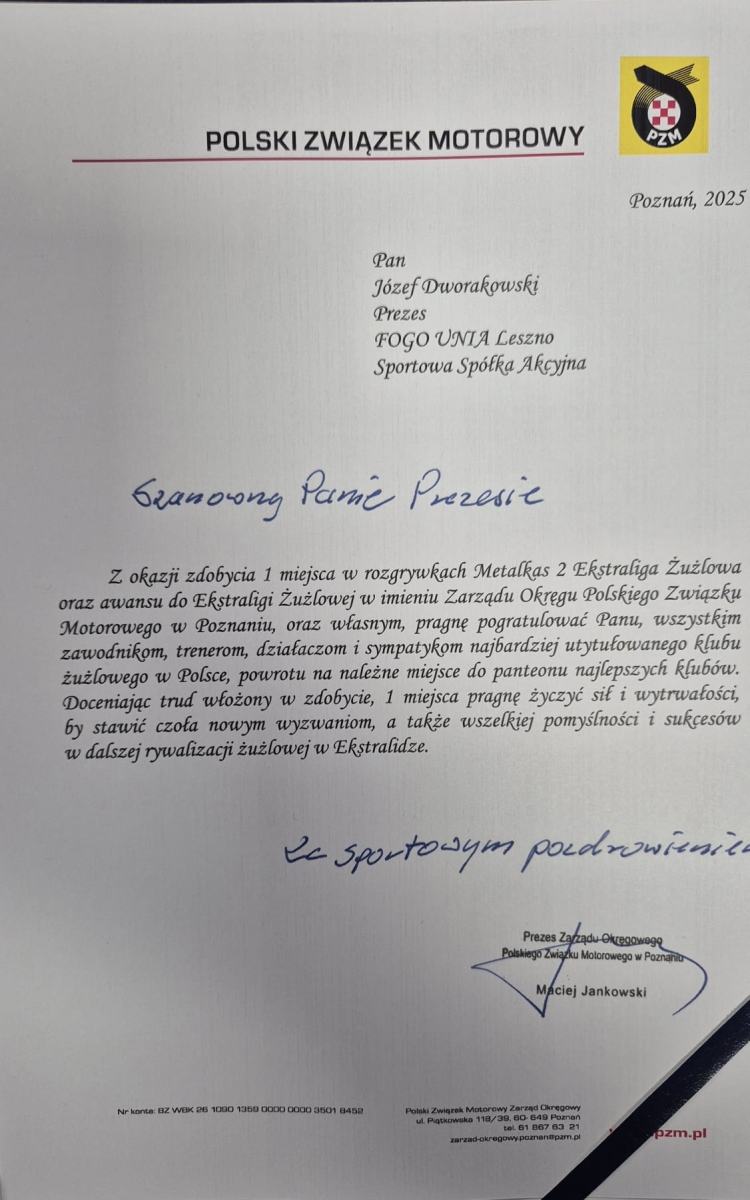 PZM
POLSKI ZWIĄZEK MOTOROWY
Poznań, 2025
Pan
Józef Dworakowski
Prezes
FOGO UNIA Leszno
Sportowa Spółka Akcyjna
Szanowny Panie Prezesie
Z okazji zdobycia 1 miejsca w rozgrywkach Metalkas 2 Ekstraliga Żużlowa
oraz awansu do Ekstraligi Żużlowej w imieniu Zarządu Okręgu Polskiego Związku
Motorowego w Poznaniu, oraz własnym, pragnę pogratulować Panu, wszystkim
zawodnikom, trenerom, działaczom i sympatykom najbardziej utytułowanego klubu
żużlowego w Polsce, powrotu na należne miejsce do panteonu najlepszych klubów.
Doceniając trud włożony w zdobycie, 1 miejsca pragnę życzyć sił i wytrwałości,
by stawić czoła nowym wyzwaniom, a także wszelkiej pomyślności i sukcesów
w dalszej rywalizacji żużlowej w Ekstralidze.
Ze sportowym pozdrowieniem
Prezes Zarządu Okręgowego
Polskiego Związku Motorowego w Poznaniu
Maciej Jankowski
Nr konta: BZ WBK 26 1090 1359 0000 0000 3501 8452
Polski Związek Motorowy Zarząd Okręgowy
ul. Piątkowska 118/39, 60-649 Poznań
tel. 61 867 63 21
zarzad-okregowy.poznan@pzm.pl
pzm.pl